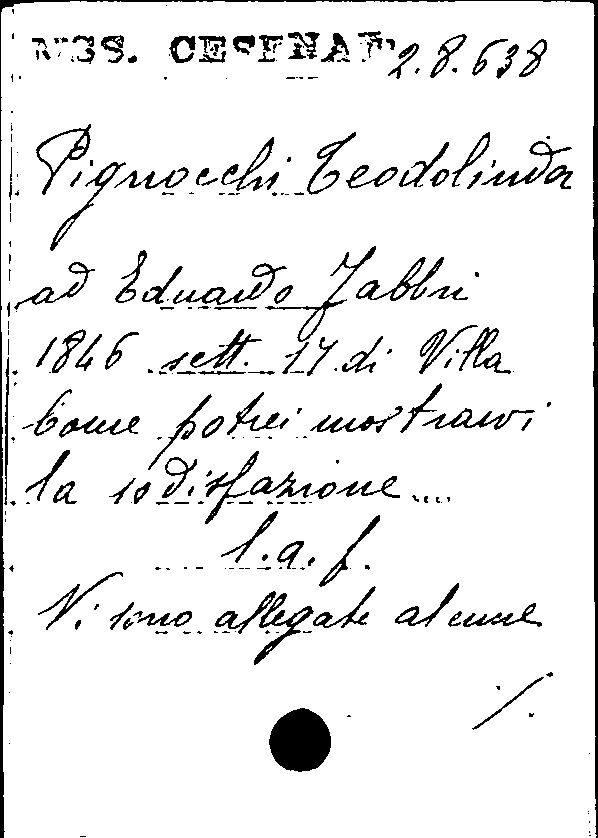 MSS. CESENATI 2.8.638
Pignocchi Teodolinda
ad Eduardo Fabbri
1846 sett. 17 di Villa
Come potrei mostrarvi
la sodisfazione....
l.a.f.
Vi sono allegate alcune
./.